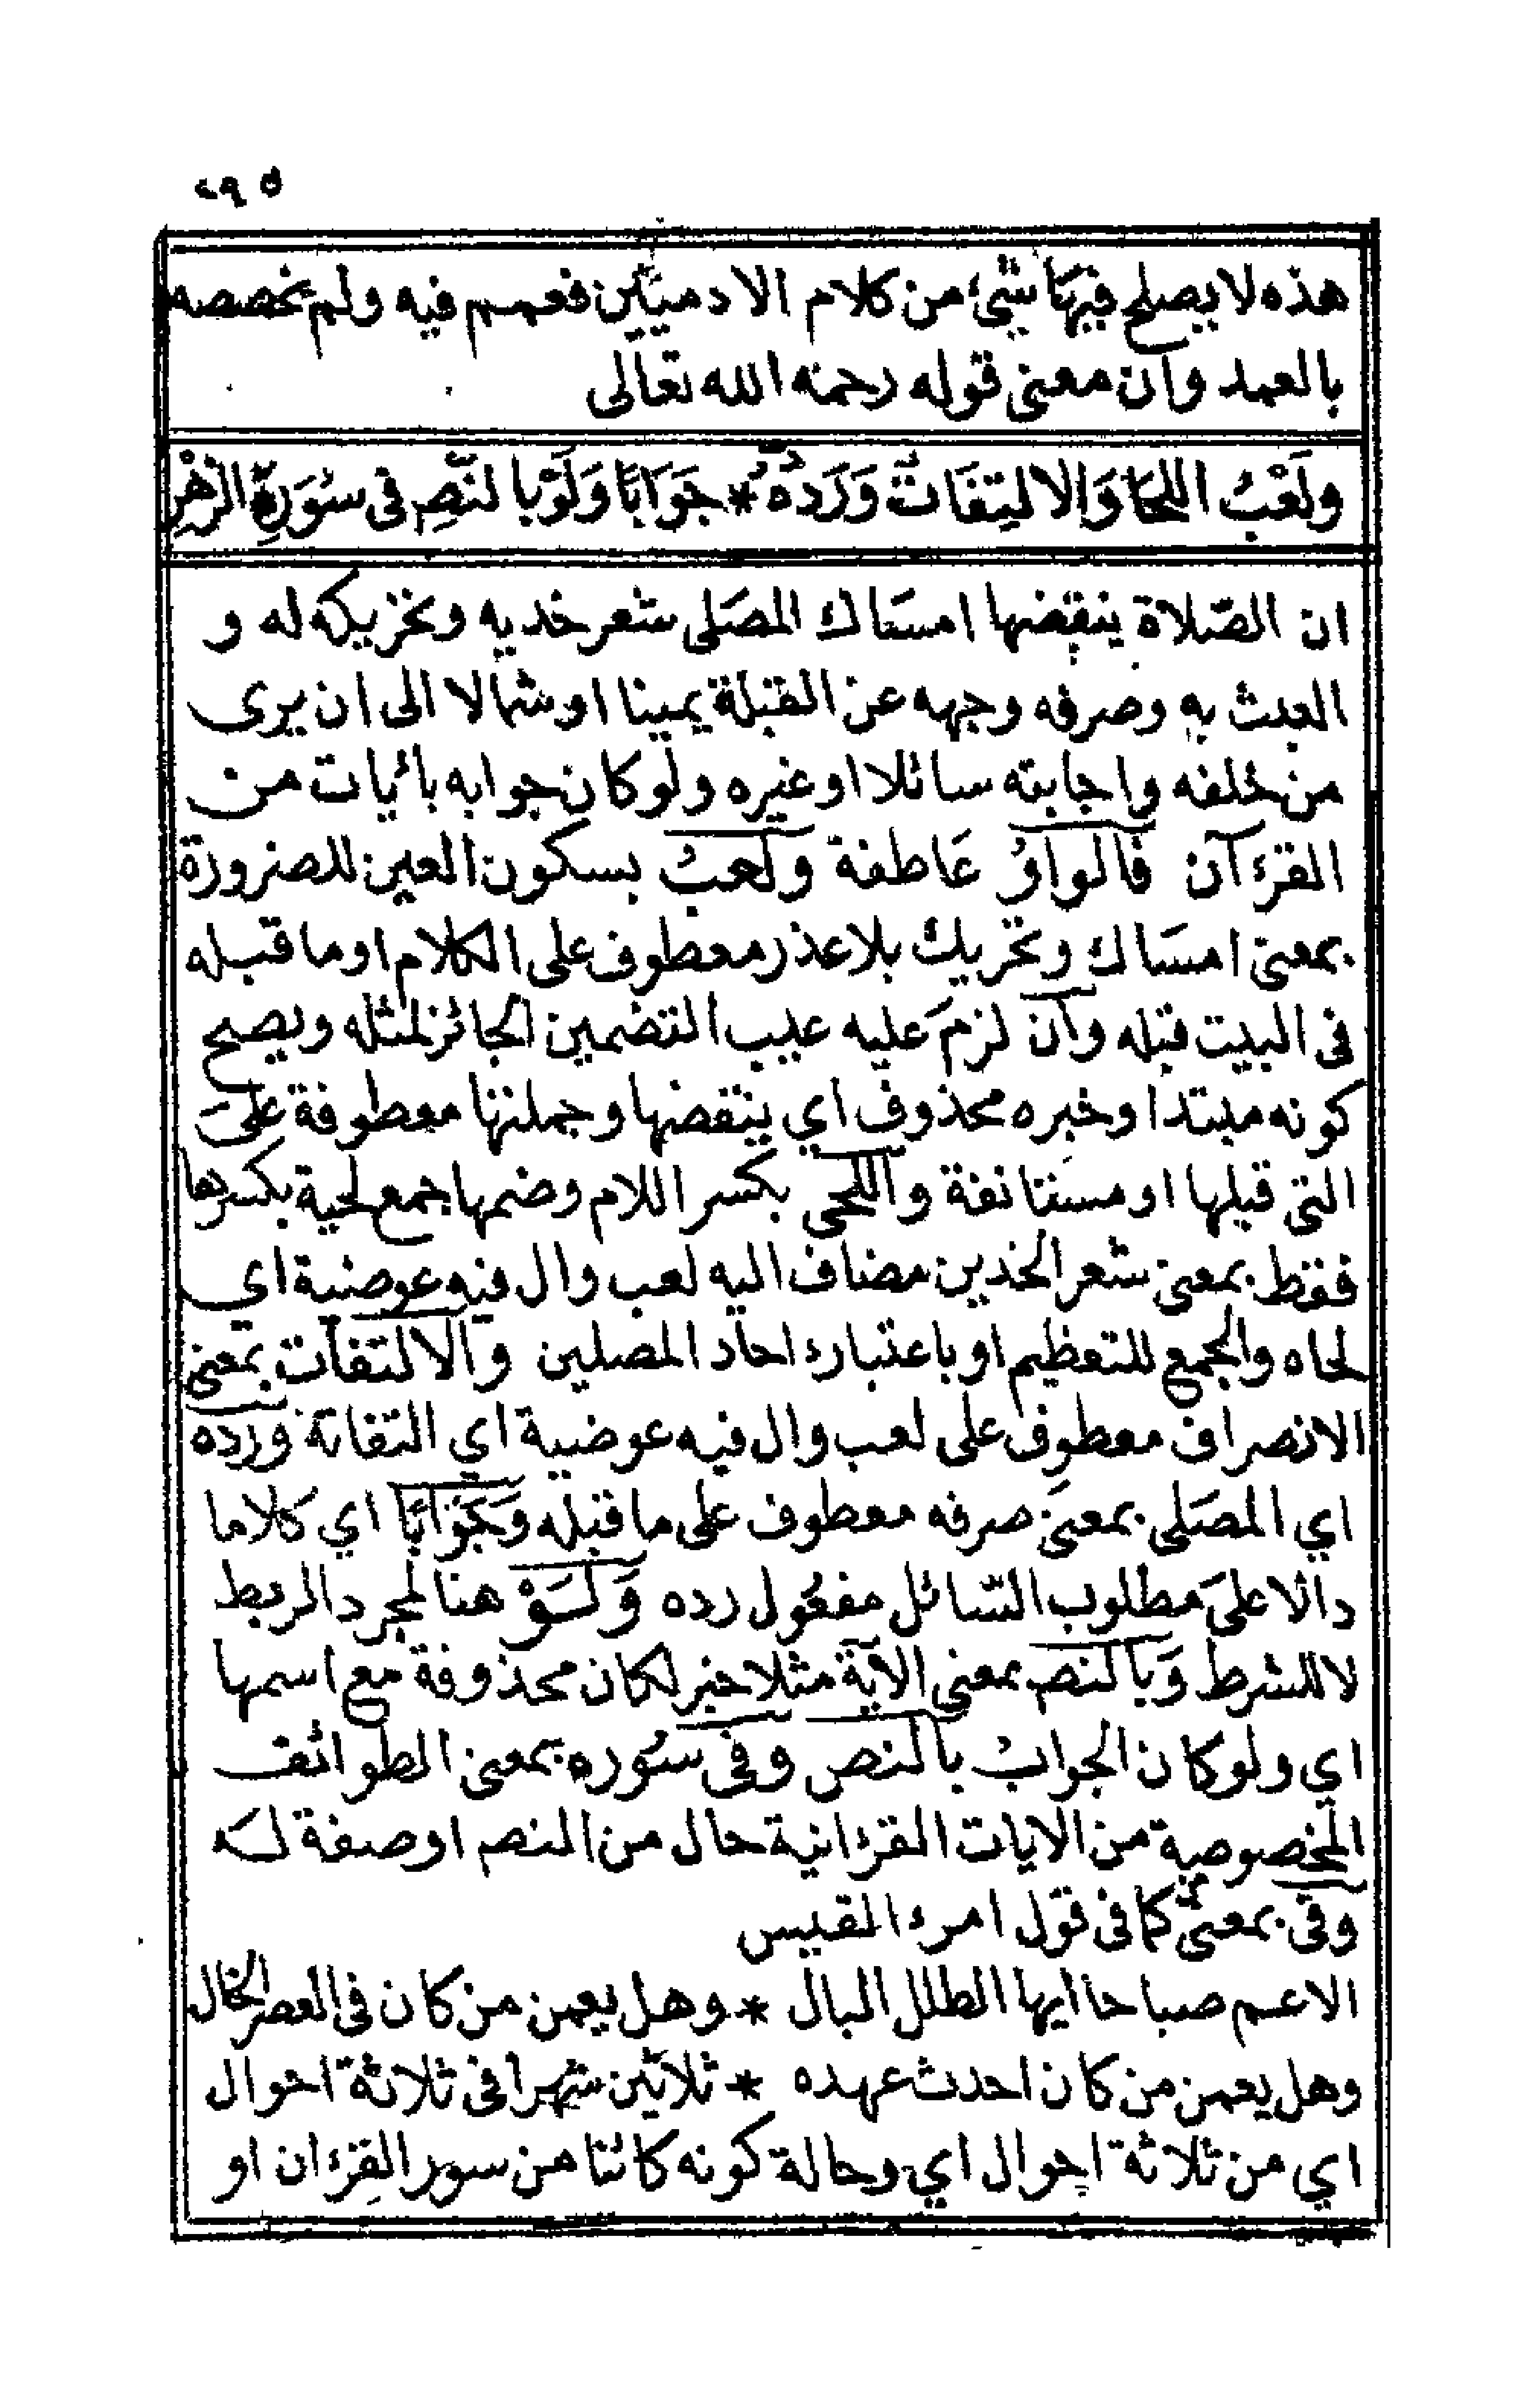 ٢٩٥
هذه لا يصلح فيها شئ من كلام الادميين فعمم فيه ولم يخصصه
بالعمد وان معنى قوله رحمه الله تعالى
ولَعْبُ اللحا وَالالتِفَاتُ وَرَدُّهُ * جَوَابًا وَلَوْ بالنَّصِ في سُوَرِهِ الزُهْرِ
ان الصَّلاة ينقضها امسَاك المصَلى شعر خديه وتحريكه له و
العبث به وصرفه وجهه عن القبلة يمينا او شمالا الى ان يرى
من خلفه واجابته سائلا او غيره ولو كان جوابه بأيات من
القرءآن فالواوُ عَاطفة ولعبُ بسكون العين للضرورة
بمعنى امسَاك وتحريك بلا عذر معطوف على الكلام او ما قبله
فى البيت قبله وان لزمَ عليه عيب التضمين الجائز لمثله ويصح
كونه مبتدا وخبره محذوف اي ينقضها وجملتها معطوفة علىَ
التى قبلها او مستانفة واللحى بكسر اللام وضمها جمع لحية بكسرها
فقط بمعنى شعر الخدين مضاف اليه لعب وال فيه عوضية اي
لحاه والجمع للتعظيم او باعتبار ءاحاد المصلين والالتفات بمعنى
الانصراف معطوف على لعب وال فيه عوضية اي التفاته ورده
اي المصَلى بمعنى صرفه معطوف على ما قبله وَجَوَابًا اي كلاما
دالا علىَ مطلوب السَّائل مفعُول رده وَلَوْ هنا لمجرد الربط
لا للشرط وَبالنص بمعنى الآية مثلا خبر لكان محذوفة مع اسمها
اي ولو كان الجوابُ بالنص وفى سُوره بمعنى الطوائف
المخصوصة من الايات القرءانية حال من النص او صفة له
وفى بمعنى من كما فى قول امرء القيس
الا عم صباحا ايها الطلل البال * وهل يعمن من كان فى العصر الخال
وهل يعمن من كان احدث عهده * ثلاثين شهرا فى ثلاثة احوال
اي من ثلاثة احوال اي وحالة كونه كائنا من سور القرءان او